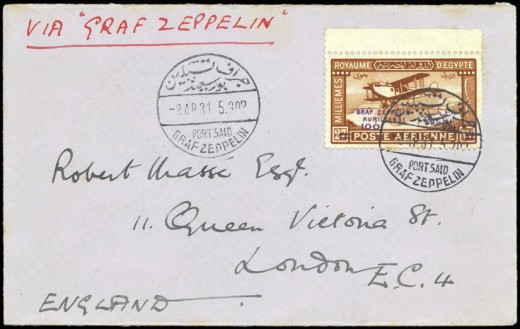 VIA "GRAF ZEPPELIN"
جراف تسبلين
بورسعيد
-9AP31 5.30P
PORT SAID
GRAF ZEPPELIN
ROYAUME D'EGYPTE
MILLIEMES
GRAF ZEPPELIN
AVRIL
POSTE AERIENNE
27
PORT SAID
GRAF ZEPPELIN
Robert Massé Esqr.
11. Queen Victoria St.
London
E.C.4
ENGLAND